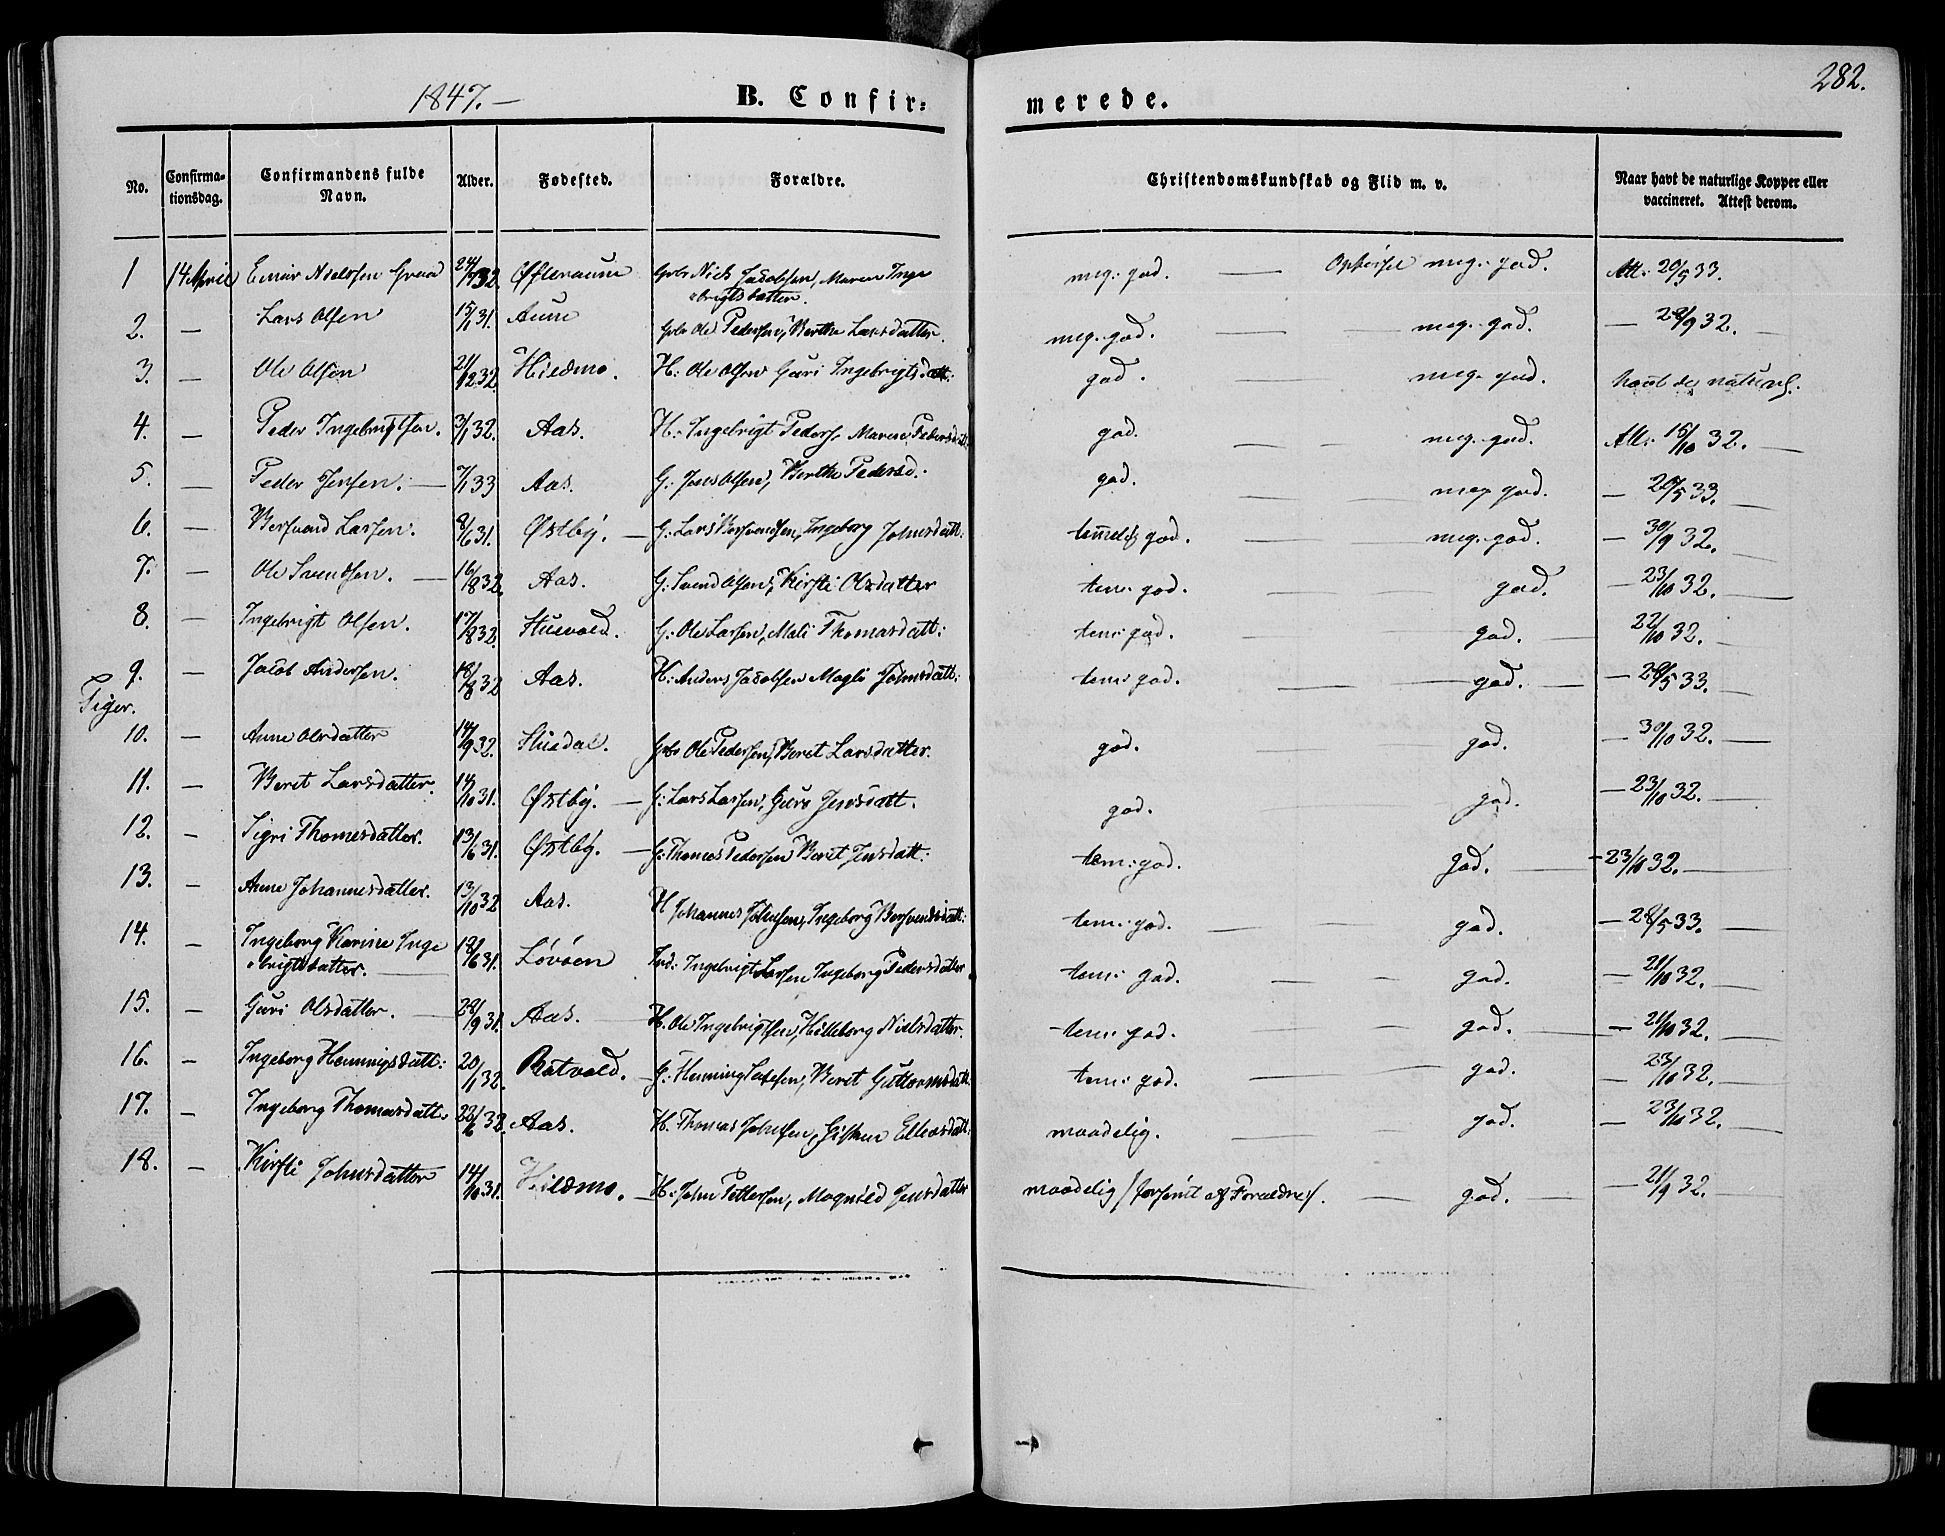 1847. — B. Confir: merede. 282.
No. Confirma-tionsdag. Confirmandens fulde Navn. Alder. Fødested. Forældre. Christendomskundskab og Flid m. v. Naar havt de naturlige Kopper eller vaccineret. Attest derom.
1 14 April Nielssen 24/9 32. Niels Jacobsen, Maren Inge meg: god. — Opførsel meg: god. Att: 20/5 33.
brigtsdatter.
2. — Lars Olsen 15/1 31. Aune Ole Pedersen, Berthe Larsdatter. meg. god. — — meg. god. —
3. — Ole Olsen 21/12 32. Hildmo. H: Ole Olsen Guri Ingebrigtsdatt: god. — meg. god. havt de naturl.
4. — Peder Ingebrigtsen. 3/1 32. Aas. H: Ingebrigt Peders. Maren Pedersdatt: god. — — meg. god. Att: 15/10 32. —
5. — Peder Jensen. — 7/1 33 Aas. G: Jens Olsen, Berthe Pedersd. god. — — meg god. — 20/5 33. —
6. — Bersvend Larsen. 8/6 31. Østby. — G: Lars Bersvendsen, Ingeborg Johnsdatt: god. — — meg. god. — 30/9 32. —
7. — Ole Svendsen. — 16/8 32. Aas. G: Svend Olsen, Kirsti Olsdatter tem: god. — — god. — 23/10 32. —
8. — Ingebrigt Olsen. 17/8 32. G: Ole Larsen, Mali Thomasdatt: tem: god. — — god. — 22/10 32. —
9. — Jacob Andersen. 18/8 32 Aas. H: Anders Jacobsen Magli Johnsdatt: tem: god. — — god. — — 5 33. —
Piger.
10. — Anne Olsdatter 14/9 32. Ole Pedersen, Beret Larsdatter. god. — god. — 30/10 32. —
11. — Beret Larsdatter. 14/10 31. Østby. — G: Lars Larsen, Guro Jensdatt. god. — god. — 23/10 32. —
12. — Sigri Thomesdatter. 13/6 31. Østby. — G: Thomes Pedersen Beret Jensdatt: tem: god. — god. — - 23/10 32. —
13. — Anne Johannesdatter. 13/10 32 Aas. H Johannes Johnsen, Ingeborg Bersvendsdatt: tem: god. — — — god. — 28/5 33. —
14. — Ingeborg Karine Inge 18/6 31. Løvøen Ind: Ingebrigt Larsen Ingeborg Pedersdatter tem: god. — — — god. — 21/10 32. —
brigtsdatter. —
15. — Guri Olsdatter. — 28/9 31. Aas. H. Ole Ingebrigtsen, Hilleborg Nielsdatter. tem: god. — god. — 21/10 32. —
16. — Ingeborg Henningsdatt: 20/1 32. Ratvold. — G: Henning Beret Guttormsdatt. tem: god. — — god. — 23/10 32. —
17. — Ingeborg Thomasdatt. 22/6 32. Aas. H. Thomas Johnsen, maadelig. — — god. — 23/10 32. —
18. — Kirsti Johnsdatter 14/10 31. Hildmo. — H. John Pettersen, Magnild Jensdatter maadelig /forsømt af Forældre/. — god. — — 21/9 32. —